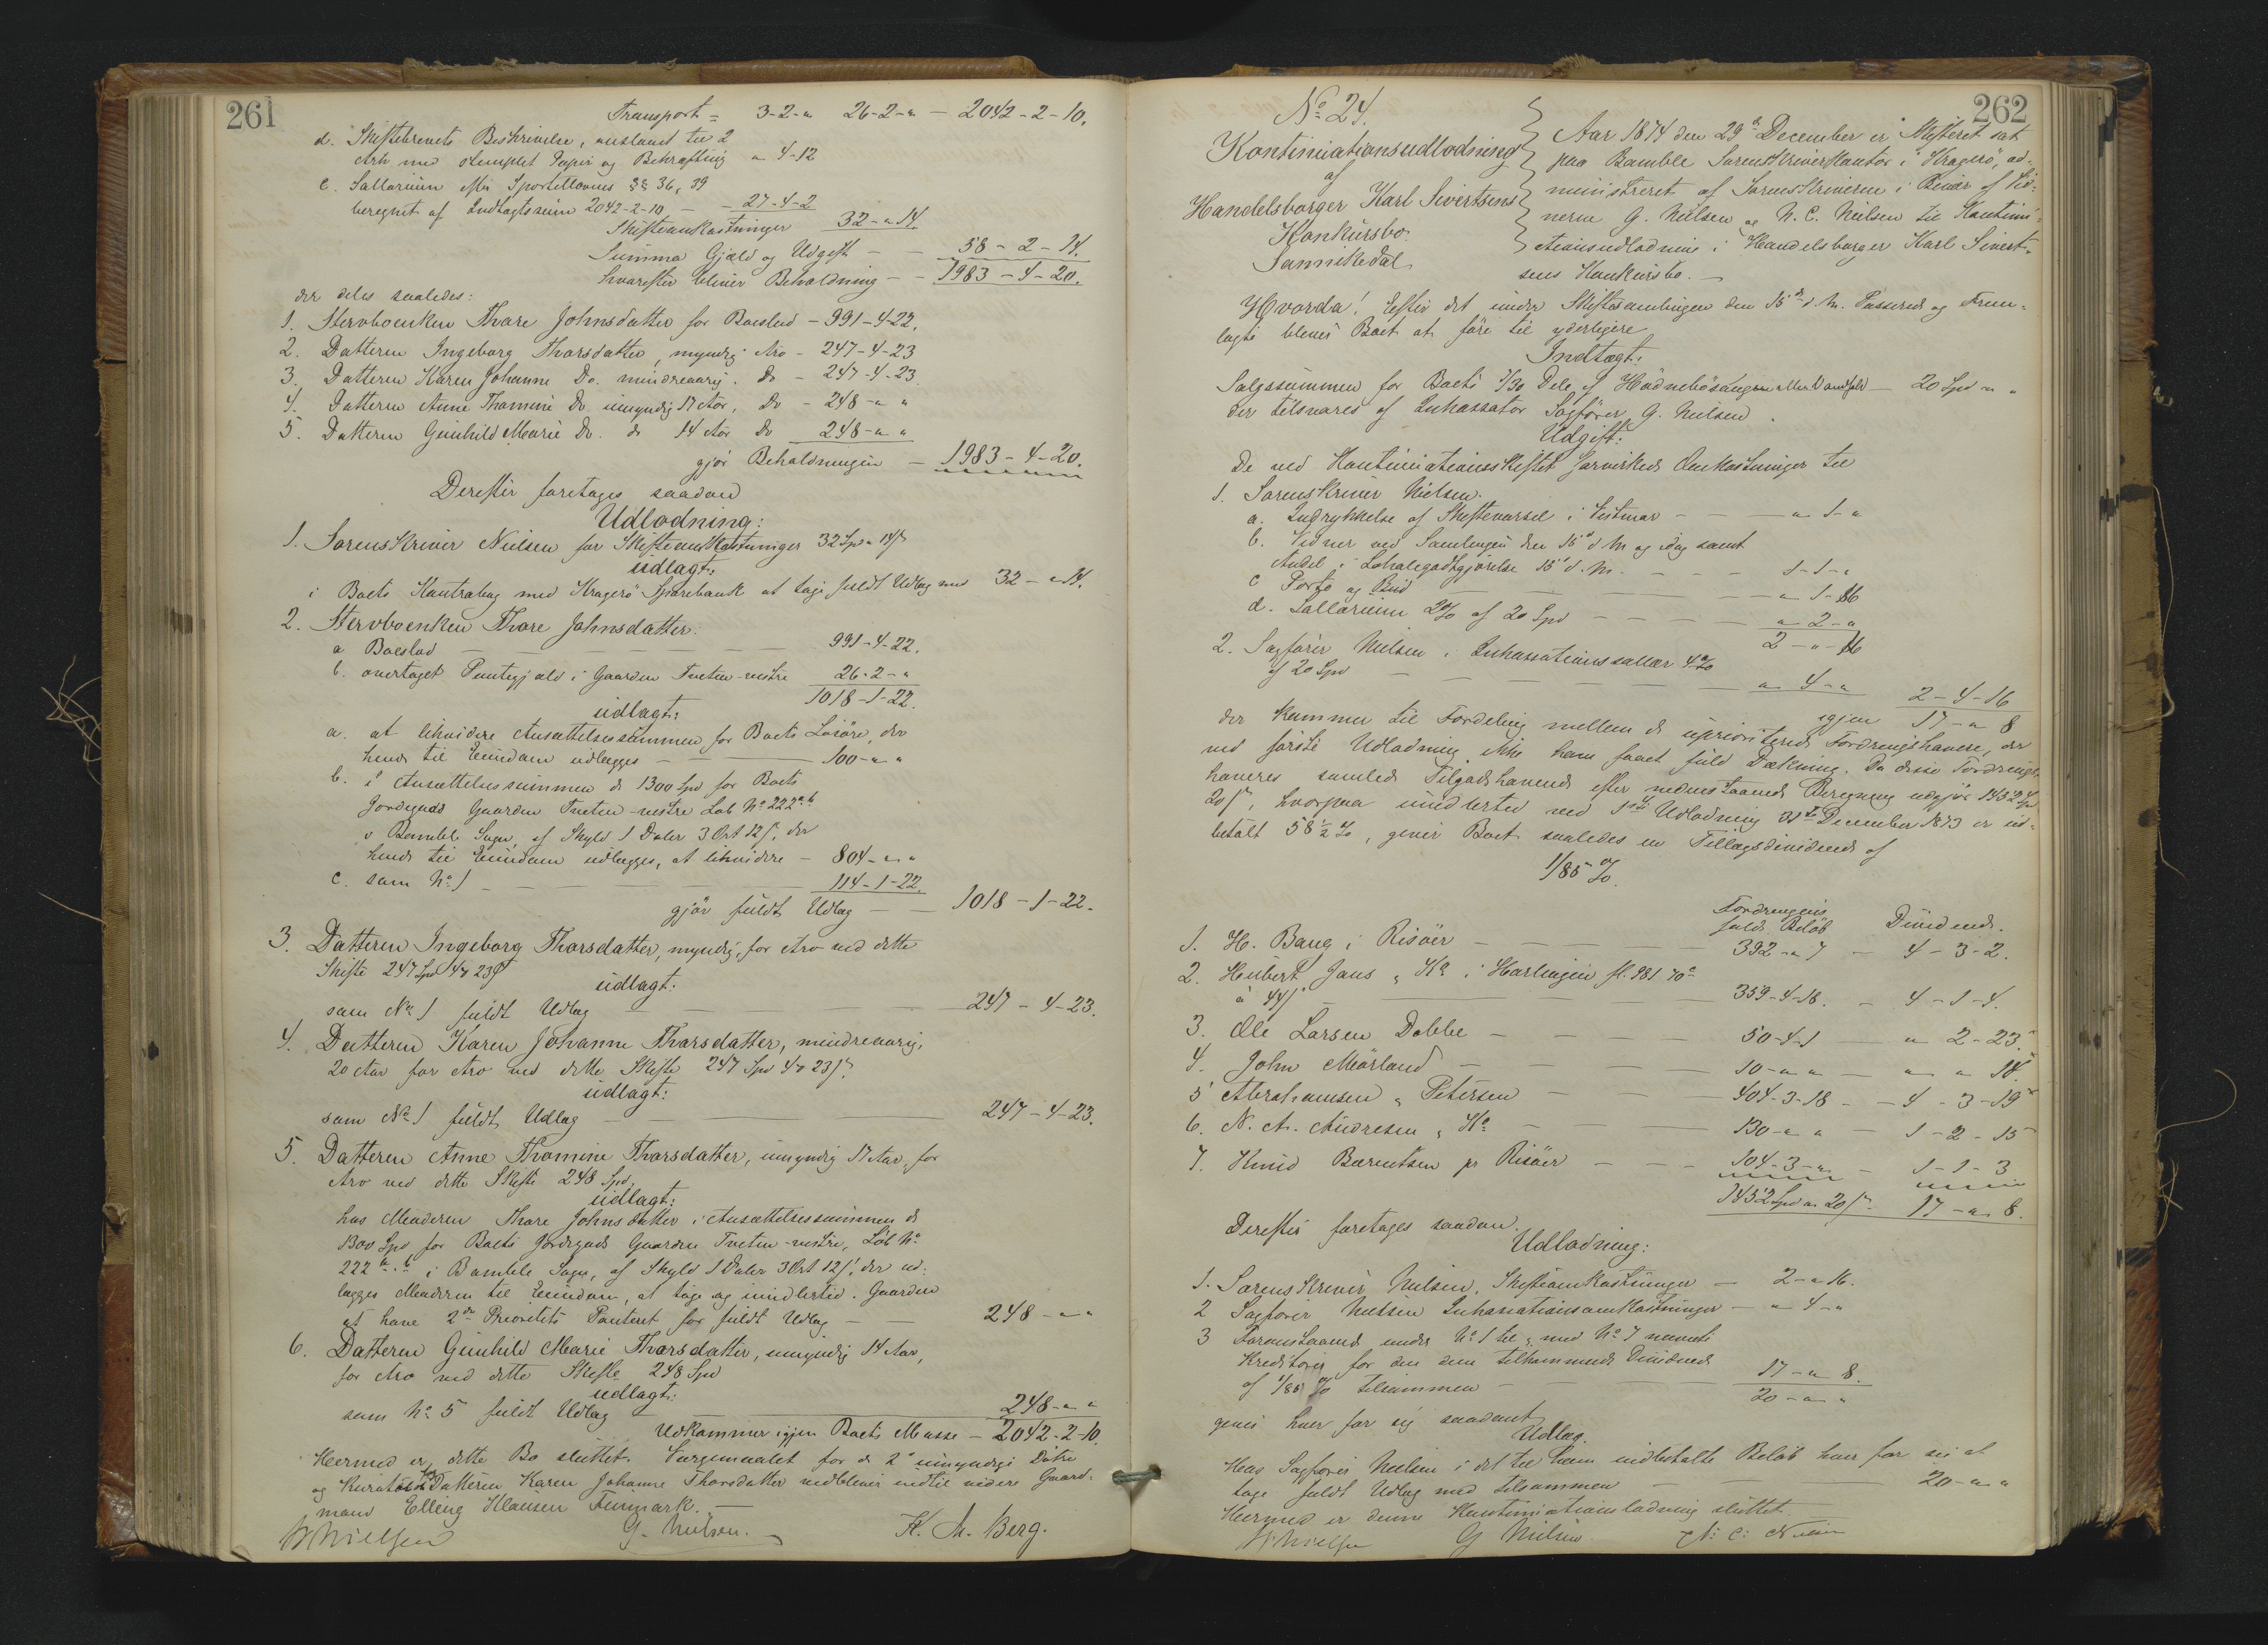 261
Transport = 3-2-" 26-2-" - 2042-2-10.
d. Skiftebrevets Beskrivelse, anslaaet til 2
Ark med stemplet Papir og Bekræftning " 4-12
e. Sallarium efter Sportellovens §§ 36, 39
beregnet af Indtægtssum 2042-2-10 - - 27-4-2
Skifteomkostninger 32-"-14.
Summa Gjæld og Udgift - - 58-2-14.
hvorefter bliver Beholdning - - 1983-4-20.
der deles saaledes:
1. Stervboenken Thore Johnsdatter for Boeslod - 991-4-22.
2. Datteren Ingeborg Thorsdatter, myndig Arv - 247-4-23
3. Datteren Karen Johanne Do. mindreaarig. Do - 247-4-23
4. Datteren Anne Thomine Do umyndig 17 Aar, Do - 248-" "
5. Datteren Gunhild Marie Do. do 14 Aar Do 248-" "
gjør Beholdningen - 1983-4-20.
Derefter foretages saadan
Udlodning:
1. Sorenskriver Nielsen for Skifteomkostninger 32 Spd " 14 ß
udlagt:
i Boets Kontrabog med Kragerö Sparebank at tage fuldt Udlæg med 32-"14.
2. Stervboenken Thore Johnsdatter:
a Boeslod - 991-4-22.
b. overtaget Pantegjæld i Gaarden Tveten-vestre 26-2-"
1018-1-22.
udlagt:
a. at likvidere Ansættelsessummen for Boets Lösöre, der
hende til Eiendom udlægges - 100-" "
b. i Ansættelsessummen de 1300 Spd for Boets
Jordegods Gaarden Tveten-vestre Löb No 222 a.b
i Bamble Sogn, af Skyld 1 Daler 3 Ort 12 ß, der
hende til Eiendom udlægges, at likvidere - 804-" "
c. som No 1 - 114-1-22.
gjör fuldt Udlæg - - 1018-1-22.
3. Datteren Ingeborg Thorsdatter, myndig, for Arv ved dette
Skifte 247 Spd 4 " 23 ß
udlagt:
som No 1 fuldt Udlæg - 247-4-23.
4. Datteren Karen Johanne Thorsdatter, mindreaarig,
20 Aar for Arv ved dette Skifte 247 Spd 4 " 23 ß.
udlagt:
som No 1 fuldt Udlæg - 247-4-23.
5. Datteren Anne Thomine Thorsdatter, umyndig 17 Aar, for
Arv ved dette Skifte 248 Spd.
udlagt:
hos Moderen Thore Johnsdatter i Ansættelsessummen de
1300 Spd for Boets Jordegods Gaarden Tveten-vestre, Löb No
222 a.b i Bamble Sogn, af Skyld 1 Daler 3 Ort 12 ß, der ud-
lægges Moderen til Eiendom, at tage og imidlertid i Gaarden
at have 2den Prioritets Panteret for fuldt Udlæg - - 248-" "
6. Datteren Gunhild Marie Thorsdatter, umyndig 14 Aar,
for Arv ved dette Skifte 248 Spd
udlagt:
som No 5 fuldt Udlæg - 248-" "
Udkommer igjen Boets Masse - 2042-2-10.
Hermed er dette Bo sluttet. Værgemaalet for de 2 umyndige Dötre
og for Datteren Karen Johanne Thorsdatter vedbliver indtil videre Gaard-
mand Elling Klausen Finmark.
Nielsen G. Nielsen. K. M. Berg.
262
No 24.
Kontinuationsudlodning
af
Handelsborger Karl Sivertsens
Konkursbo.
Sannikedal
Aar 1874 den 29de December er Skifteret sat
paa Bamble Sorenskriverkontor i Kragerö, ad-
ministreret af Sorenskriveren i Beviær af Vid-
nerne G. Nielsen og N. C. Nielsen til Kontinu-
ationsudlodning i Handelsborger Karl Sivert-
sens Konkursbo.
Hvorda! Efter det under Skiftesamlingen den 15de d. M. Passerede og Frem-
lagte bliver Boet at före til yderligere
Indtægt:
Salgssummen for Boets 7/30 Dele af Hödnebösaugen - 20 Spd " "
der tilsvares af Inkassator Sagförer G. Nielsen.
Udgift:
De ved Kontinuationsskiftet forvirkede Omkostninger til
1. Sorenskriver Nielsen.
a. Indrykkelse af Skiftevarsel i Vestmar - - " 1-"
b. Vidner ved Samlingen den 15de d. M og idag samt
Andel i Lokalegodtgjörelse 15de d. M. - - 1-1-"
c Porto og Bud - " 1-16
d. Sallarium 2% af 20 Spd - " 2-"
2-"-16
2. Sagförer Nielsen i Inkassationssallær 4%
af 20 Spd - " 4-" 2-4-16
igjen 17-" 8
der kommer til Fordeling mellem de uprioriterede Fordringshavere, der
ved förste Udlodning ikke have faaet fuld Dækning. Da disse Fordrings-
haveres samlede Tilgodehavende efter nedenstaaende Beregning udgjör 1452 Spd
20 ß, hvorpaa imidlertid ved 1ste Udlodning 31te December 1873 er ud-
betalt 58 1/2 %, giver Boet saaledes en Tillægsdividende af
1/85 %.
Fordringens
fulde Belöb Dividende.
1. H. Bang i Risöer - 392-" 7 - 4-3-2.
2. Hubert Jans & Ko i Harlingen fl. 981 70 c
à 44 ß - 359-4-16. - 4-1-4.
3. Ole Larsen Dobbe - 50-4-1 - " 2-23.
4. John Mörland - 10-" " - " " 14.
5 Abrahamsen & Petersen - 404-3-18 - 4-3-19
6. N. A. Andresen & Ko - 130-" " - 1-2-15
7. Knud Berentsen pr Risöer - 104-3-" - 1-1-3
1452 Spd " 20 ß 17-" 8.
Derefter foretages saadan
Udlodning:
1. Sorenskriver Nielsen, Skifteomkostninger - 2-" 16.
2 Sagförer Nielsen Inkassationsomkostninger - " 4-"
3 Foranstaaende under No 1 til & med No 7 nævnte
Kreditorer for den dem tilkommende Dividende
af 1/85 % tilsammen - 17-" 8.
20-" "
gives hver for sig saadant
Udlæg.
Hos Sagförer Nielsen i det til ham indbetalte Belöb hver for sig at
tage fuldt Udlæg med tilsammen - 20-" "
Hermed er denne Kontinuationslodning sluttet.
Nielsen G Nielsen. N: C: Nielsen